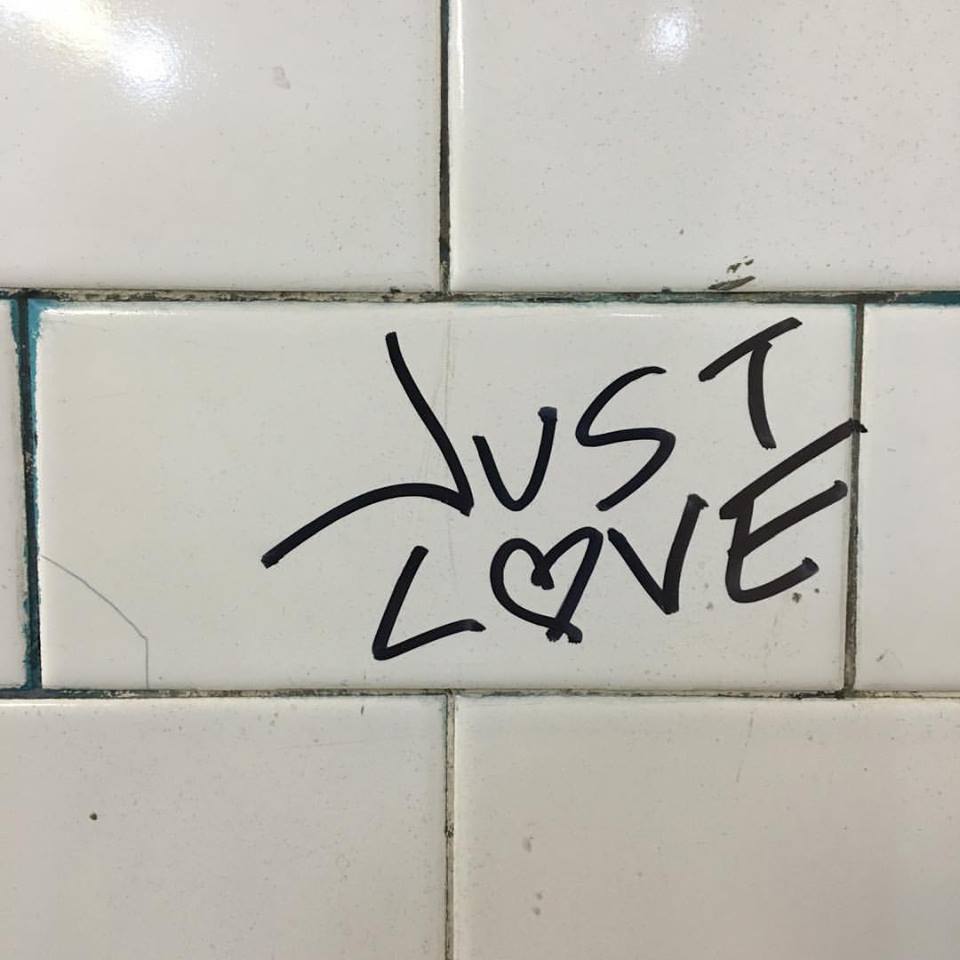 JUST
L♡VE